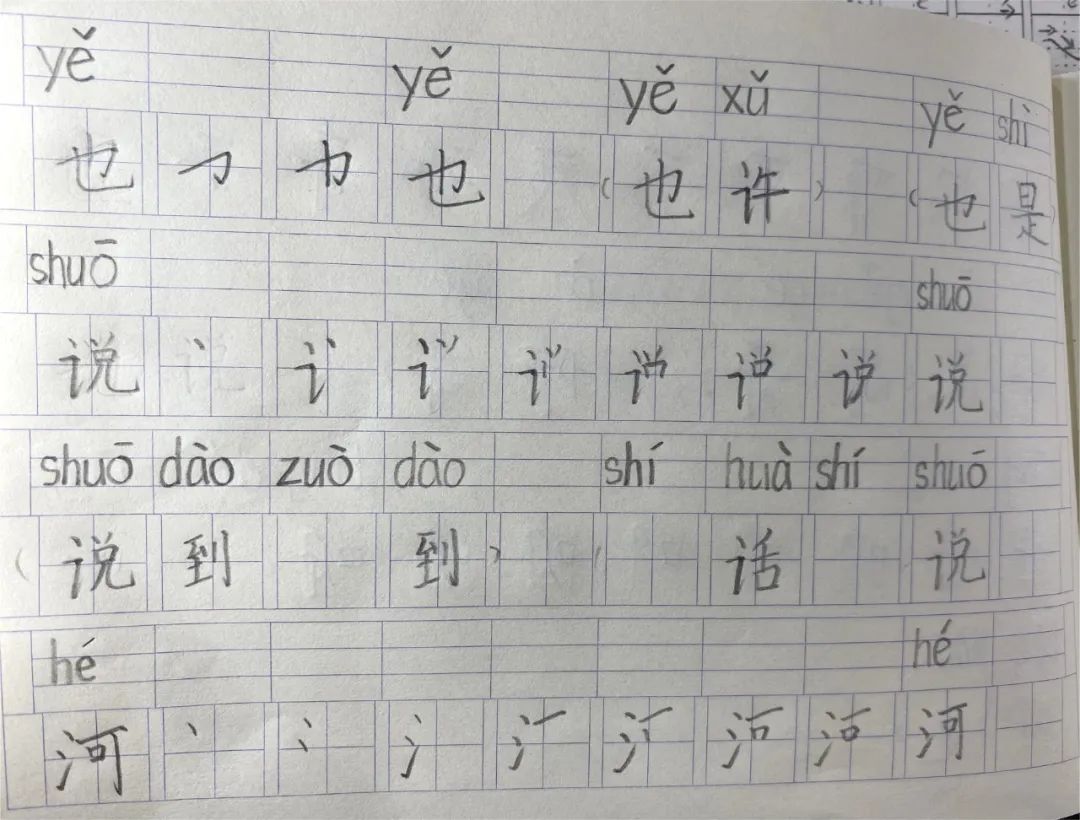 yě yě yě xǔ yě shì
也 ㇆ 也 (也许) (也是)
shuō shuō
说 丶 讠 说
shuō dào zuò dào shí huà shí shuō
(说到 到) ( 话 说
hé hé
河 丶 冫 氵 河